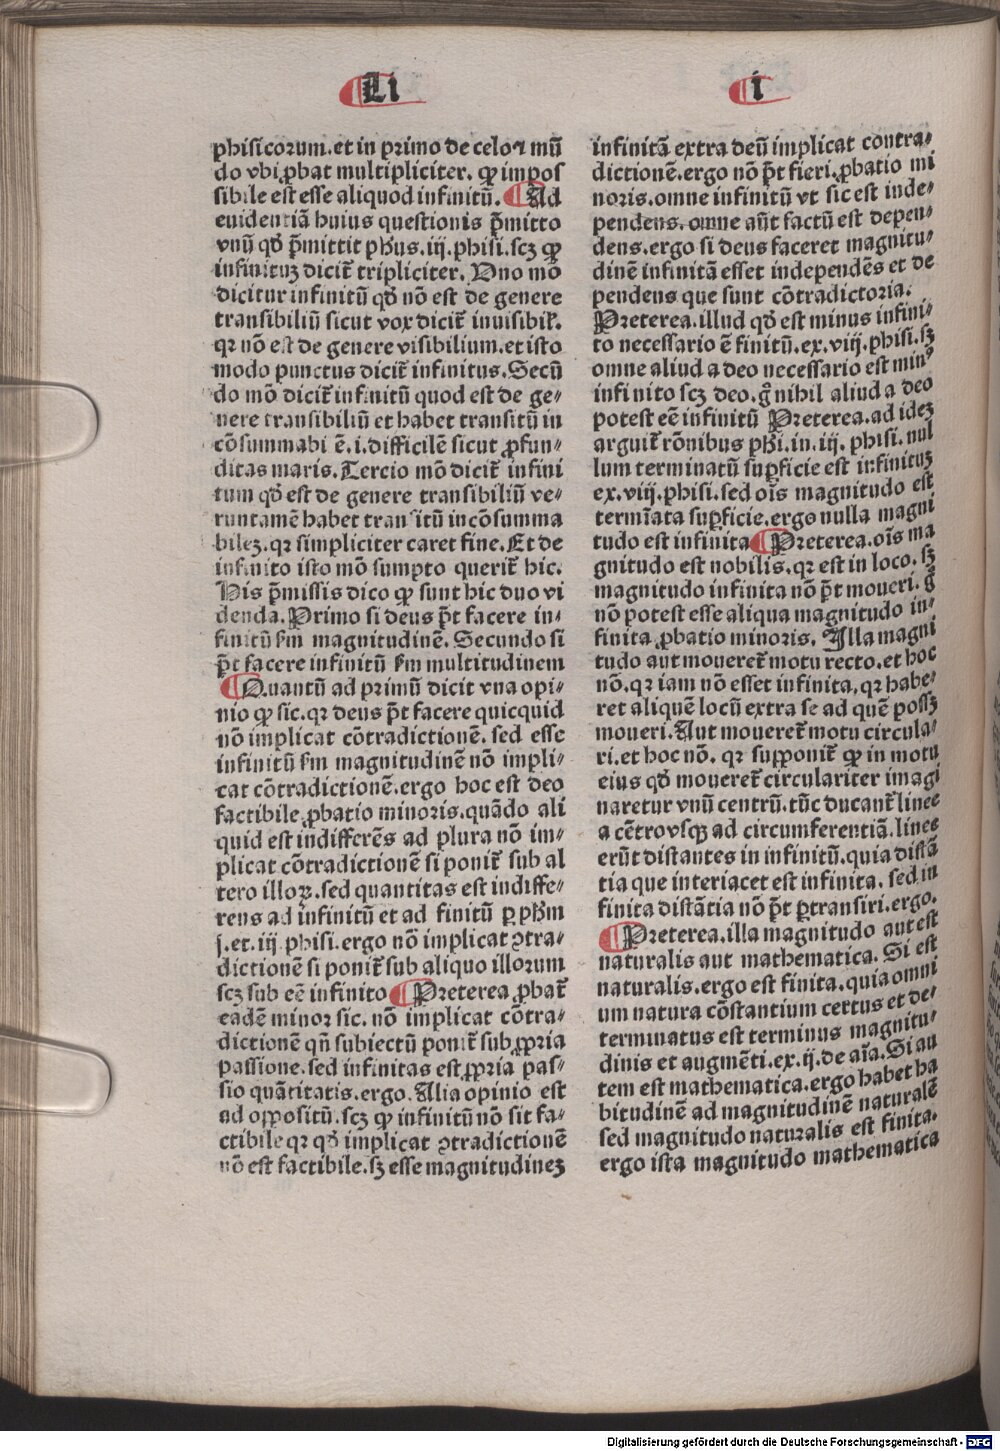 Li
i
phisicorum.et in primo de celo ⁊ mū
do vbi ꝓbat multipliciter. ꝙ impos
sibile est esse aliquod infinitū. Ad
euidentiā huius questionis p̄mitto
vnū qd̄ p̄mittit ph̄us.iij.phisi.scꝫ ꝙ
infinituꝫ dicit᷑ tripliciter. Uno mō
dicitur infinitū qd̄ nō est de genere
transibiliū sicut vox dicit᷑ inuisibil̄.
qꝛ nō est de genere visibilium.et isto
modo punctus dicit᷑ infinitus. Secū
do mō dicit᷑ infinitū quod est de ge⸗
nere transibiliū et habet transitū in
cōsummabi ē.i.difficilē sicut ꝓfun⸗
ditas maris. Tercio mō dicit᷑ infini
tum qd̄ est de genere transibiliū ve⸗
runtamē habet transitū incōsumma
bileꝫ.qꝛ simpliciter caret fine. Et de
infinito isto mō sumpto querit᷑ hic.
His p̄missis dico ꝙ sunt hic duo vi
denda. Primo si deus p̄t facere in⸗
finitū ẜm magnitudinē. Secundo si
p̄t facere infinitū ẜm multitudinem
Quantū ad primū dicit vna opi⸗
nio ꝙ sic.qꝛ deus p̄t facere quicquid
nō implicat cōtradictionē. sed esse
infinitū ẜm magnitudinē nō impli⸗
cat cōtradictionē.ergo hoc est deo
factibile.ꝓbatio minoris.quādo ali
quid est indifferēs ad plura nō im⸗
plicat cōtradictionē si ponit᷑ sub al
tero illoꝝ.sed quantitas est indiffe⸗
rens ad infinitū et ad finitū ꝑ ph̄m
j.et.iij phisi.ergo nō implicat ꝯtra⸗
dictionē si ponit᷑ sub aliquo illorum
scꝫ sub eē infinito Preterea ꝓbat᷑
eadē minor sic. nō implicat cōtra⸗
dictionē qn̄ subiectū ponit᷑ sub ꝓpria
passione.sed infinitas est ꝓpria pas⸗
sio quātitatis.ergo. Alia opinio est
ad oppositū.scꝫ ꝙ infinitū nō sit fa⸗
ctibile qꝛ qd̄ implicat ꝯtradictionē
nō est factibile.sꝫ esse magnitudineꝫ
infinitā extra deū implicat contra⸗
dictionē.ergo nō p̄t fieri.ꝓbatio mi
noris.omne infinitū vt sic est inde⸗
pendens.omne aūt factū est depen⸗
dens.ergo si deus faceret magnitu⸗
dinē infinitā esset independēs et de
pendens que sunt cōtradictoria.
Preterea.illud qd̄ est minus infini⸗
to necessario ē finitū.ex.viij.phisi.sꝫ
omne aliud a deo necessario est minꝰ
infinito scꝫ deo.g̊ nihil aliud a deo
potest eē infinitū Preterea.ad ideꝫ
arguit᷑ rōnibus ph̄i.in.iij. phisi.nul
lum terminatū suꝑficie est infinituꝫ
ex.viij.phisi.sed oīs magnitudo est
termīata suꝑficie.ergo nulla magni
tudo est infinita Preterea.oīs ma
gnitudo est nobilis.qꝛ est in loco.sꝫ
magnitudo infinita nō p̄t moueri.g̊
nō potest esse aliqua magnitudo in⸗
finita ꝓbatio minoris. Illa magni
tudo aut moueret᷑ motu recto.et hoc
nō.qꝛ iam nō esset infinita.qꝛ habe⸗
ret aliquē locū extra se ad quē possꝫ
moueri. Aut moueret᷑ motu circula⸗
ri.et hoc nō. qꝛ supponit᷑ ꝙ in motu
eius qd̄ moueret᷑ circulariter imagi
naretur vnū centrū.tūc ducant᷑ linee
a cētro vsqꝫ ad circumferentiā.linee
erūt distantes in infinitū.quia distā
tia que interiacet est infinita. sed in
finita distātia nō p̄t ꝑtransiri.ergo.
Preterea.illa magnitudo aut est
naturalis aut mathematica. Si est
naturalis.ergo est finita.quia omni
um natura cōstantium certus et de⸗
terminatus est terminus magnitu⸗
dinis et augmēti.ex.ij.de aīa. Si au
tem est mathematica.ergo habet ha
bitudinē ad magnitudinē naturalē
sed magnitudo naturalis est finita.
ergo ista magnitudo mathematica
Digitalisierung gefördert durch die Deutsche Forschungsgemeinschaft - DFG